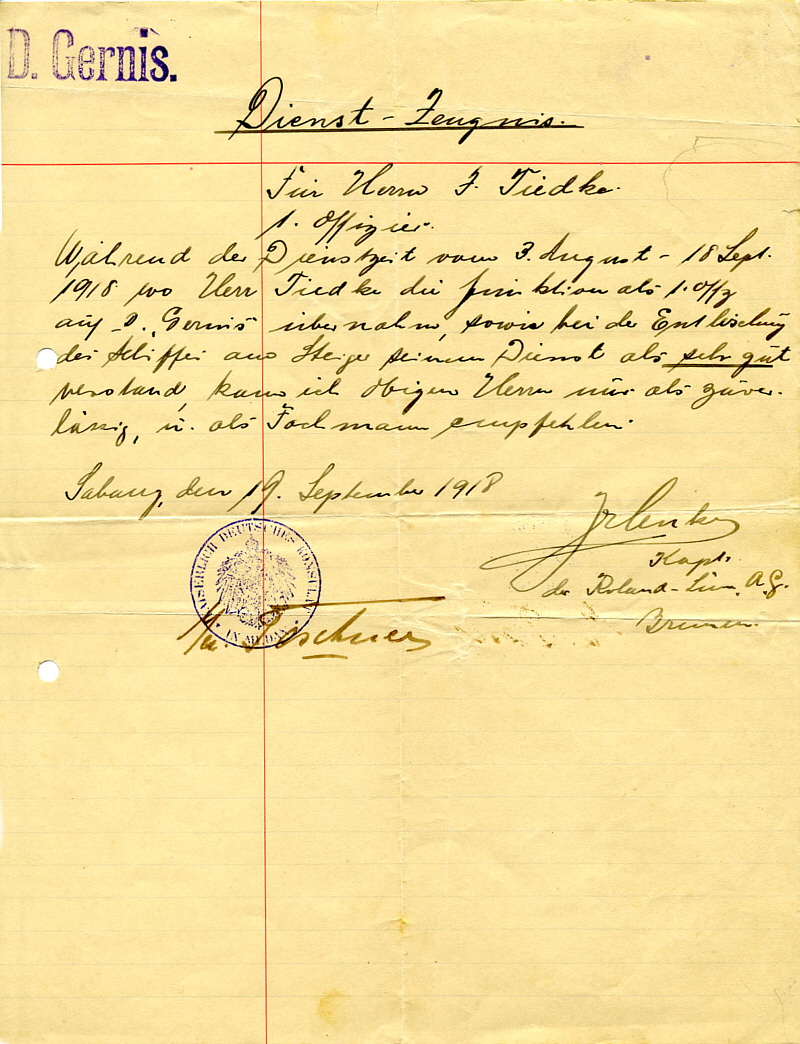 D. Gernis.
Dienst-Zeugnis.
Für Herrn F. Tiedke.
1. Offizier.
Während der Dienstzeit vom 3. August - 18 Sept.
1918 wo Herr Tiedke die funktion als 1. Offz
auf D. „Gernis" übernahm, sowie bei der Entlöschung
des Schiffes am Steiger seinem Dienst als sehr gut
verstand, kann ich obigen Herrn nur als zuver-
lässig, u. als Fachmann empfehlen.
Sabang, den 19. September 1918
Kapt.
der Roland-Linie A.G.
Bremen.
KAISERLICH DEUTSCHES KONSULAT
IN MEDAN